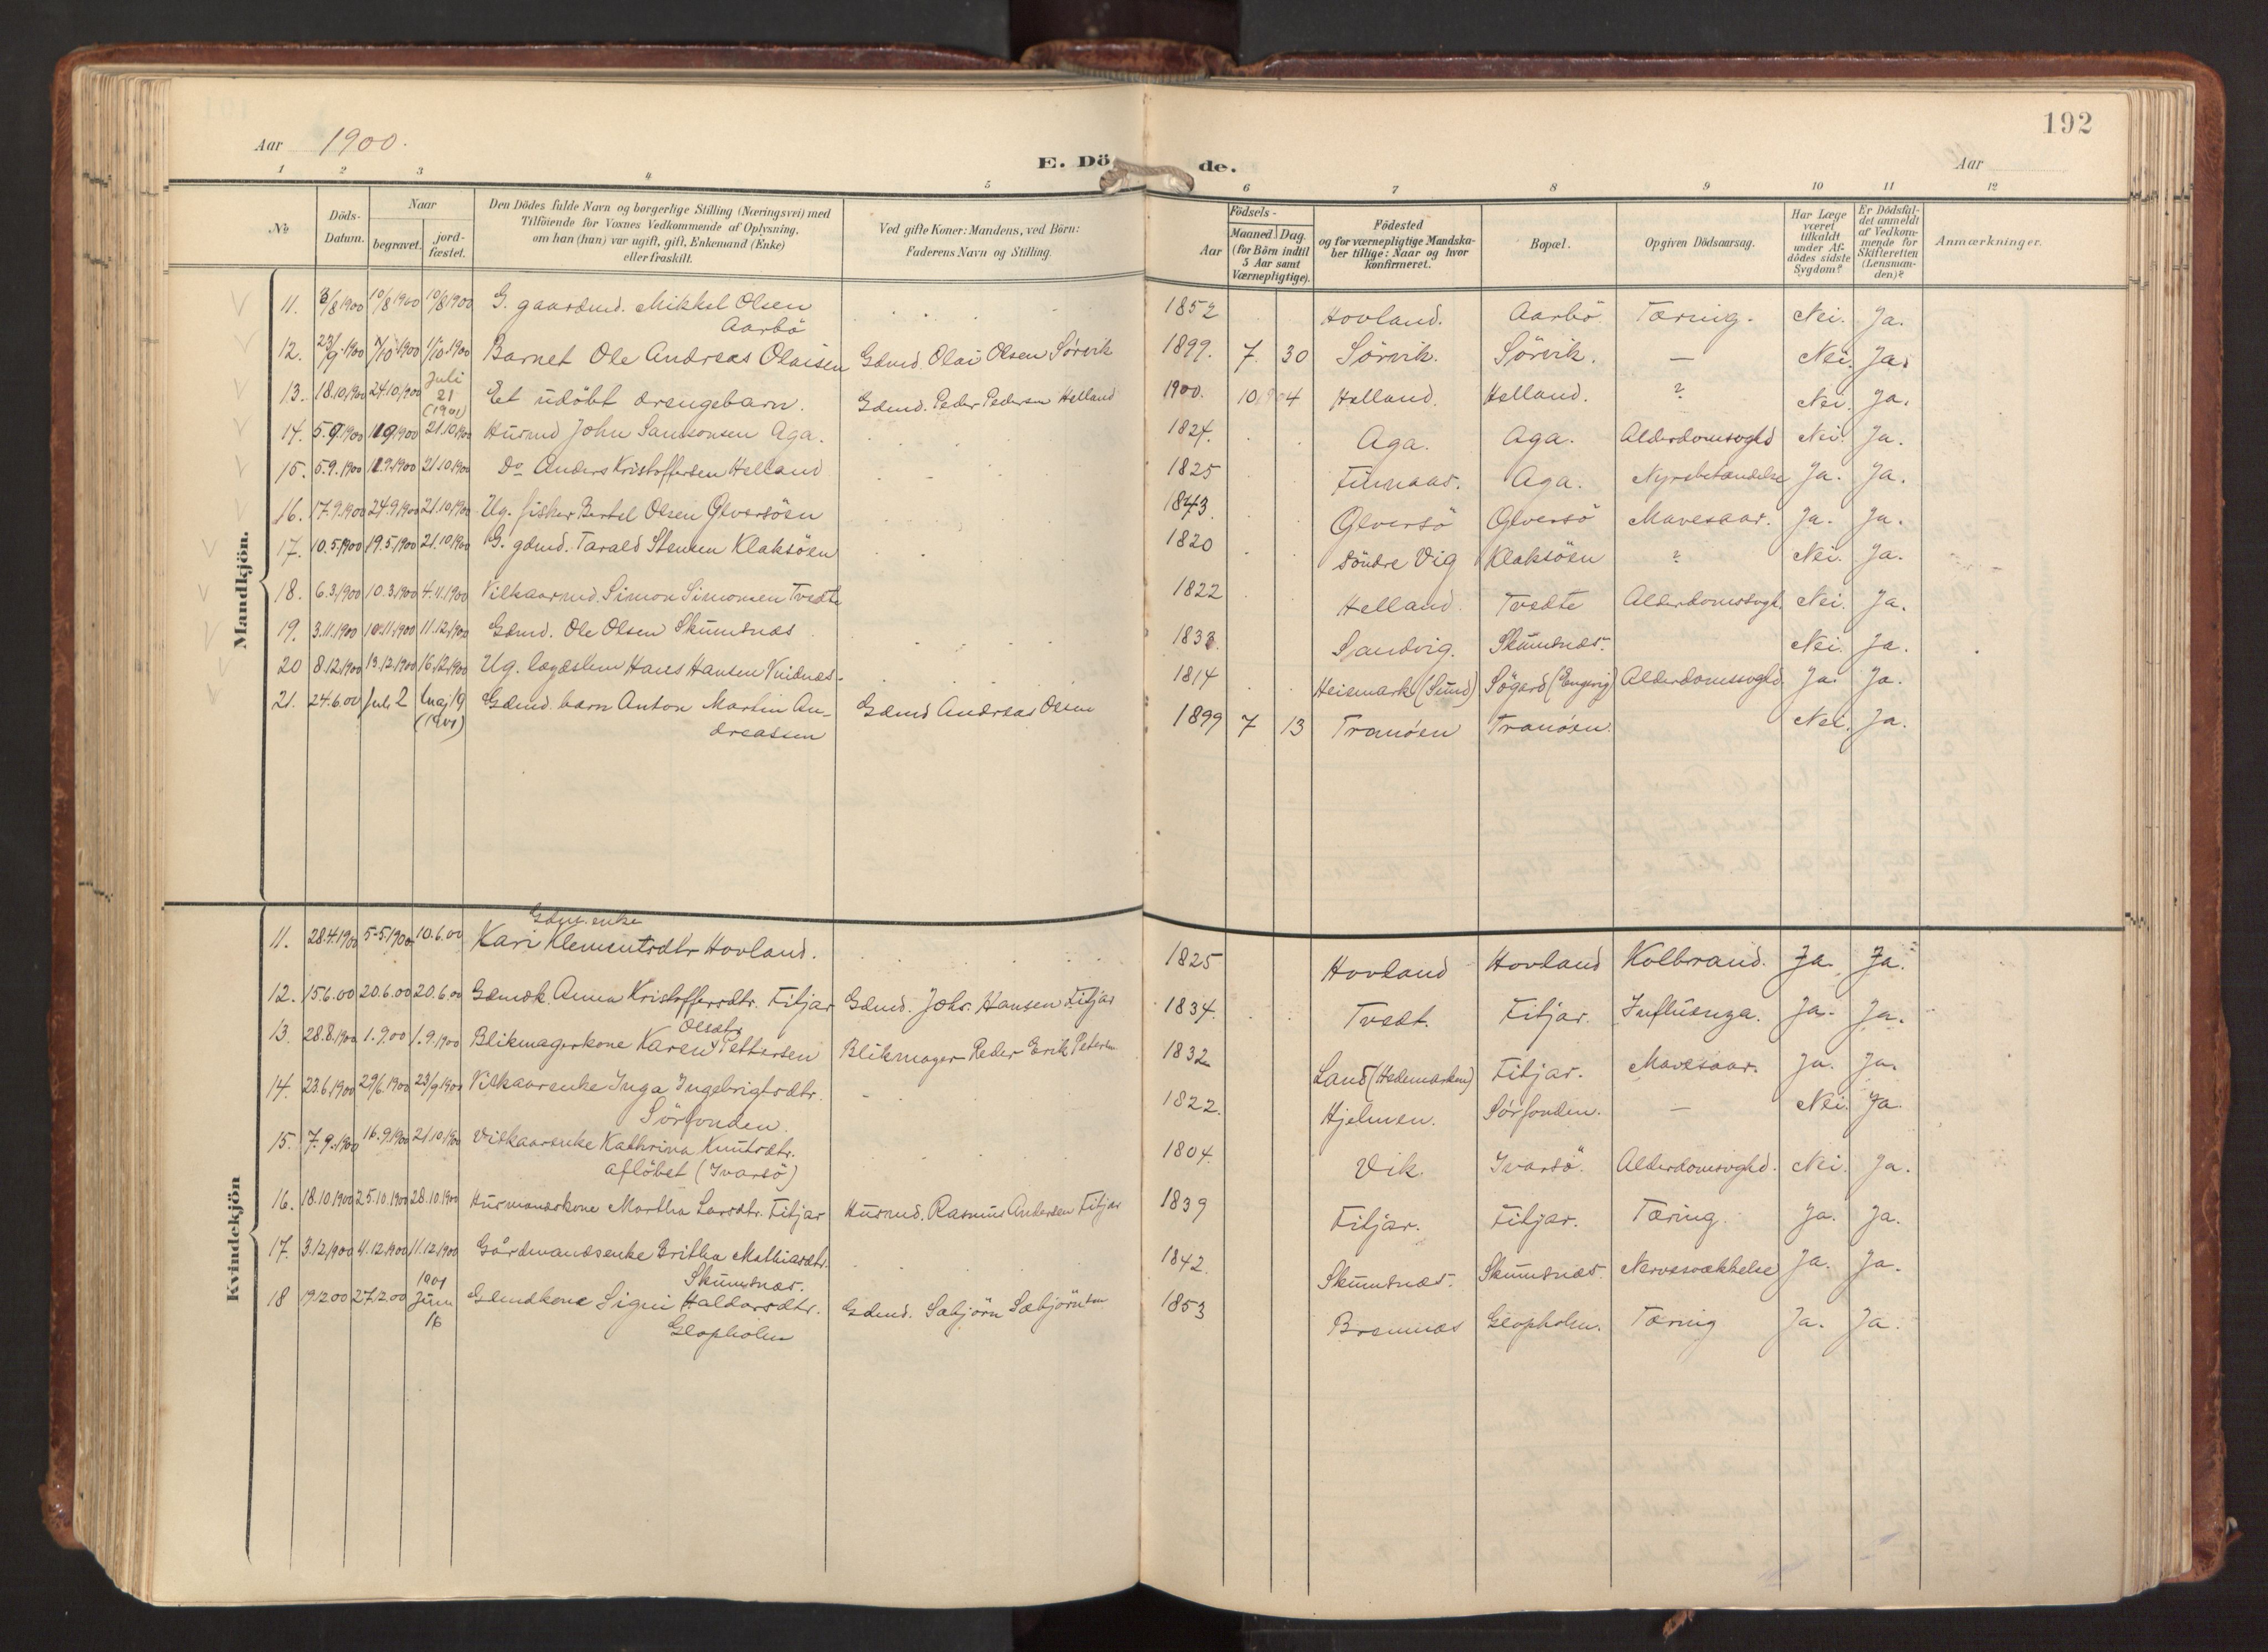 192
Aar 1900.
E. Dö de.
Aar
1 2 3 4 5 6 7 8 9 10 11 12
No
Döds-Datum.
Naar
begravet.
jord-fæstet.
Den Dödes fulde Navn og borgerlige Stilling (Næringsvei) med
Tilföiende for Voxnes Vedkommende af Oplysning,
om han (hun) var ugift, gift, Enkemand (Enke)
eller fraskilt.
Ved gifte Koner: Mandens, ved Börn:
Faderens Navn og Stilling.
Födsels-
Aar
Maaned. Dag.
(for Börn indtil
5 Aar samt
Værnepligtige).
Födested
og for værnepligtige Mandska-
ber tillige: Naar og hvor
konfirmeret.
Bopæl.
Opgiven Dödsaarsag.
Har Læge
været
tilkaldt
under Af-
dödes sidste
Sygdom?
Er Dödsfal-
det anmeldt
af Vedkom-
mende for
Skifteretten
(Lensman-
den)?
Anmærkninger.
Mandkjön.
11. 3/8 1900 10/8 1900 10/8 1900 G. gaardmd. Mikkel Olsen 1852 Hovland. Aarbö Tæring. Nei. Ja.
Aarbö
12. 23/9 1900 1/10 1900 1/10 1900 Barnet Ole Andreas Olaisen Gdmd. Olai Olsen Sörvik 1899. 7. 30 Sörvik. Sörvik. — Nei. Ja.
13. 18.10.1900 24.10.1900 Juli 21 (1901) Et udöbt drengebarn. Gdmd. Peder Pedersen Helland 1900. 10 4 Helland. Helland. ? Nei. Ja.
14. 5.9.1900 11.9.1900 21.10.1900 Husmd John Samsonsen Aga. 1824. Aga. Aga. Alderdomssvaghd Nei. Ja.
15. 5.9.1900 11.9.1900 21.10.1900 Do Anders Kristoffersen Helland 1825 Finnaas. Aga. Nyrebetændelse Ja. Ja.
16. 17.9.1900 24.9.1900 21.10.1900 Ug. fisker Bertel Olsen Gloersöen 1843. Gloersö Gloersö Mavesaar. Ja. Ja.
17. 10.5.1900 19.5.1900 21.10.1900 G. gdmd. Tarald Stensen Klaksöen 1820 Söndre Vig Klaksöen ? Nei. Ja.
18. 6.3.1900 10.3.1900 4.11.1900 Vilkaarmd. Simon Simonsen Tvedte 1822 Helland. Tvedte Alderdomssvagh. Nei. Ja.
19. 3.11.1900 10.11.1900 11.12.1900 Gdmd. Ole Olsen Skumsnæs 1833. Sandvig. Skumsnæs. Nei. Ja.
20 8.12.1900 13.12.1900 16.12.1900 Ug. lægdslem Hans Hansen 1814 Heiemark (Sund) Sögard (Engevig) Alderdomssvaghd. Ja. Ja.
21. 24.6.00 Juli 2 Maj 19 (1901) Gdmd. barn Anton Martin An- Gdmd Andreas Olsen 1899 7 13 Tranöen Tranöen. Nei. Ja.
dreassen
Kvindekjön
Gdm. enke
11. 28.4.1900 5.5.1900 10.6.00 Kari Klementsdtr Hovland. 1825 Hovland Hovland Kolbrand. Ja. Ja.
12. 15.6.00 20.6.00 20.6.00 Gdmdk. Anna Kristoffersdtr. Fitjar Gdmd. Johs. Hansen Fitjar 1834. Tvedt. Fitjar. Influenza. Ja. Ja.
Olsdtr
13. 28.8.1900 1.9.00 1.9.1900 Blikmagerkone Karen Pettersen Blikmager Peder Erik Petersen 1832 Land (Hedemarken) Fitjar. Mavesaar. Ja. Ja.
14. 23.6.1900 29/6.1900 23/9.1900 Vilkaarenke Inga Ingebrigtsdtr. 1822. Hjelmen. Sörfonden. — Nei. Ja.
Sörfonden.
15. 7.9.1900 16.9.1900 21.10.1900 Vilkaarenke Kathrina Knutsdtr. 1804. Vik. Ivarsö. Alderdomssvaghd. Nei. Ja.
aflöbet (Ivarsö)
16. 18.10.1900 25.10.1900 28.10.1900 Husmandskone Martha Larsdtr. Fitjar Husmd. Rasmus Andersen Fitjar 1839 Fitjar. Fitjar. Tæring. Ja. Ja.
17. 3.12.1900 11.12.1900 11.12.1900 Gårdmandsenke Britha Mathiasdtr. 1842. Skumsnæs. Skumsnæs. Nervesvækkelse Ja. Ja.
Skumsnæs.
18 19.12.00 27.12.00 1901 Juni 16 Gdmdkone Signi Haldorsdtr. Gdmd. Sæbjörn Sæbjörnsen 1853 Bremnæs Glopholm. Tæring Ja. Ja.
Glopholm